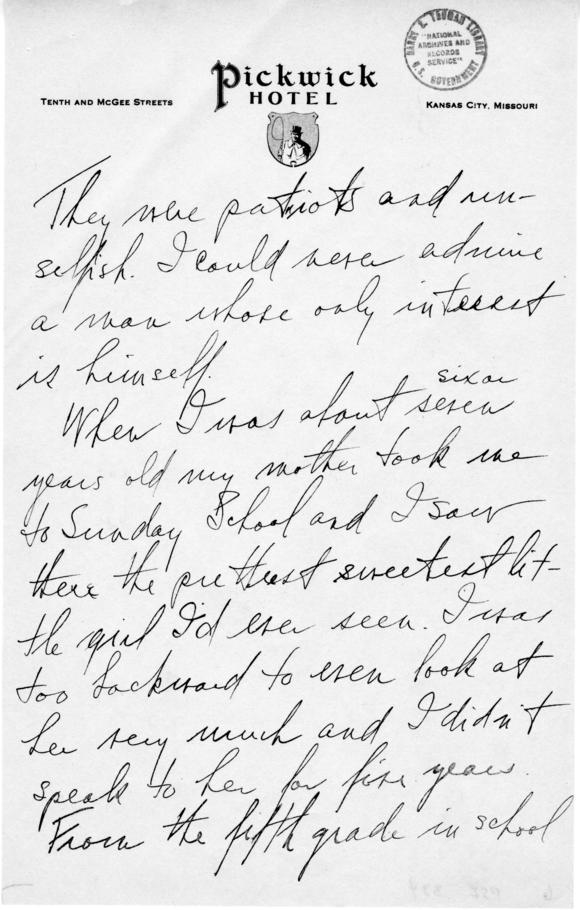 HARRY S. TRUMAN LIBRARY
"NATIONAL
ARCHIVES AND
RECORDS
SERVICE"
U.S. GOVERNMENT
Pickwick
HOTEL
TENTH AND MCGEE STREETS
KANSAS CITY, MISSOURI
They were patriots and un-
selfish. I could never admire
a man whose only interest
is himself.
six or
When I was about seven
years old my mother took me
to Sunday School and I saw
there the prettiest sweetest lit-
tle girl I'd ever seen. I was
too backward to even look at
her very much and I didn't
speak to her for five years.
From the fifth grade in school